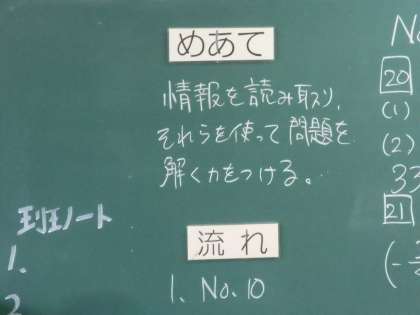 めあて
情報を読み取り、
それらを使って問題を
解く力をつける。
流れ
1、No.10
班ノート
1.
2
No
20
(1)
(2)
33
21